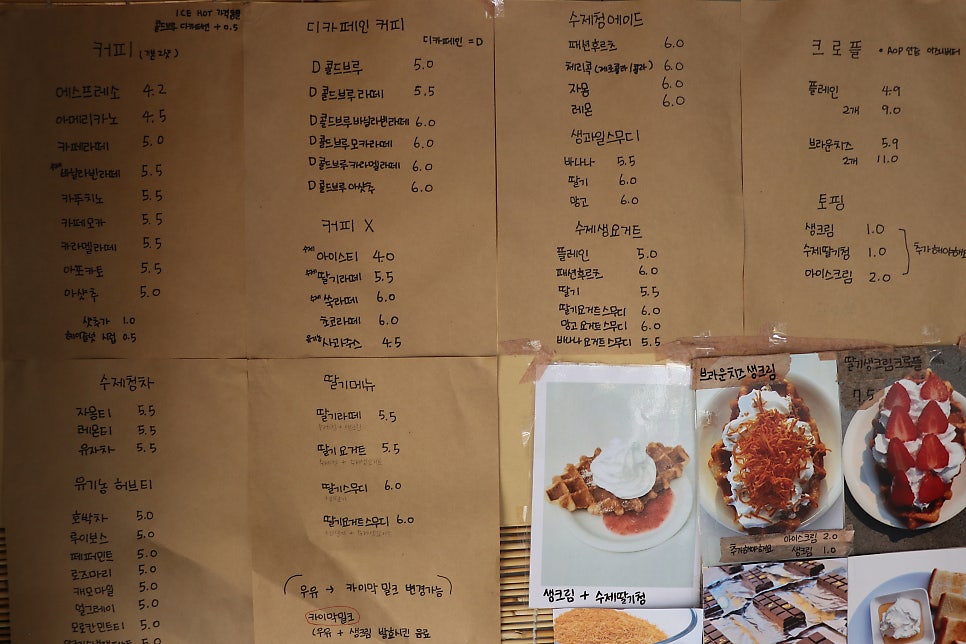 ICE HOT 가격동일
콜드브루 디카페인 + 0.5
커피 (2샷)
에스프레소 4.2
아메리카노 4.5
카페라떼 5.0
수제 바닐라빈라떼 5.5
카푸치노 5.5
카페모카 5.5
카라멜라떼 5.5
아포카토 5.5
아샷추 5.0
샷추가 1.0
헤이즐넛 시럽 0.5
디카페인 커피
디카페인 = D
D 콜드브루 5.0
D 콜드브루 라떼 5.5
D 콜드브루 바닐라빈라떼 6.0
D 콜드브루 모카라떼 6.0
D 콜드브루 카라멜라떼 6.0
D 콜드브루 아샷추 6.0
커피 X
수제 아이스티 4.0
수제 딸기라떼 5.5
수제 쑥라떼 6.0
초코라떼 6.0
유기농 사과주스 4.5
수제청에이드
패션후르츠 6.0
체리콕 (제로콜라/콜라) 6.0
자몽 6.0
레몬 6.0
생과일스무디
바나나 5.5
딸기 6.0
망고 6.0
수제생요거트
플레인 5.0
패션후르츠 6.0
딸기 5.5
딸기요거트스무디 6.0
망고요거트스무디 6.0
바나나요거트스무디 5.5
크로플 • AOP 인증 이즈니버터
플레인 4.9
2개 9.0
브라운치즈 5.9
2개 11.0
토핑
생크림 1.0
수제딸기청 1.0
아이스크림 2.0
추가해야해요
수제청차
자몽티 5.5
레몬티 5.5
유자차 5.5
유기농 허브티
호박차 5.0
루이보스 5.0
페퍼민트 5.0
로즈마리 5.0
캐모마일 5.0
얼그레이 5.0
모로칸민트티 5.0
5.0
딸기메뉴
딸기라떼 5.5
딸기 요거트 5.5
딸기스무디 6.0
딸기요거트스무디 6.0
(우유 → 카이막 밀크 변경가능)
카이막밀크
(우유 + 생크림 발효시킨 음료
생크림 + 수제딸기청
브라운치즈 생크림
추가해야해요 아이스크림 2.0
생크림 1.0
딸기생크림크로플
7.5